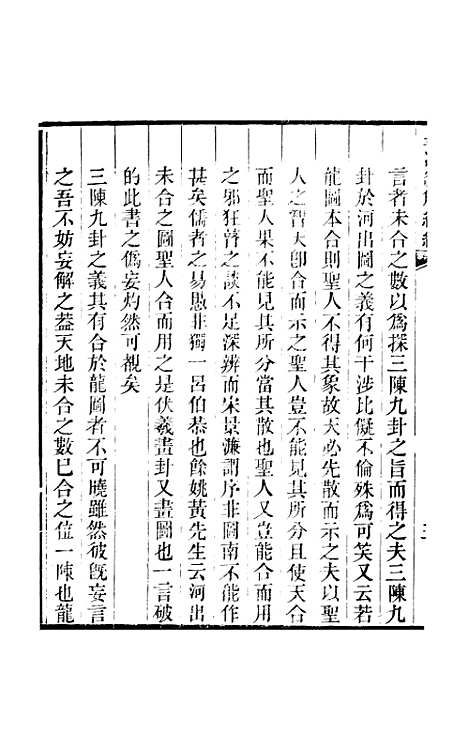 言者未合之數以爲探三陳九卦之旨而得之夫三陳九
卦於河出圖之義有何干涉比儗不倫殊爲可笑又云若
龍圖本合則聖人不得見其象故天必先散而示之夫以聖
人之智天卽合而示之聖人豈不能見其所分且使天合
而聖人果不能見其所分當其散也聖人又豈能合而用
之邪狂瞽之談不足深辨而宋景濂謂序非圖南不能作
甚矣儒者之易愚非獨一呂伯恭也餘姚黃先生云河出
未合之圖聖人合而用之是伏羲畫卦又畫圖也一言破
的此書之僞妄灼然可覩矣
三陳九卦之義其有合於龍圖者不可曉雖然彼旣妄言
之吾不妨妄解之葢天地未合之數已合之位一陳也龍